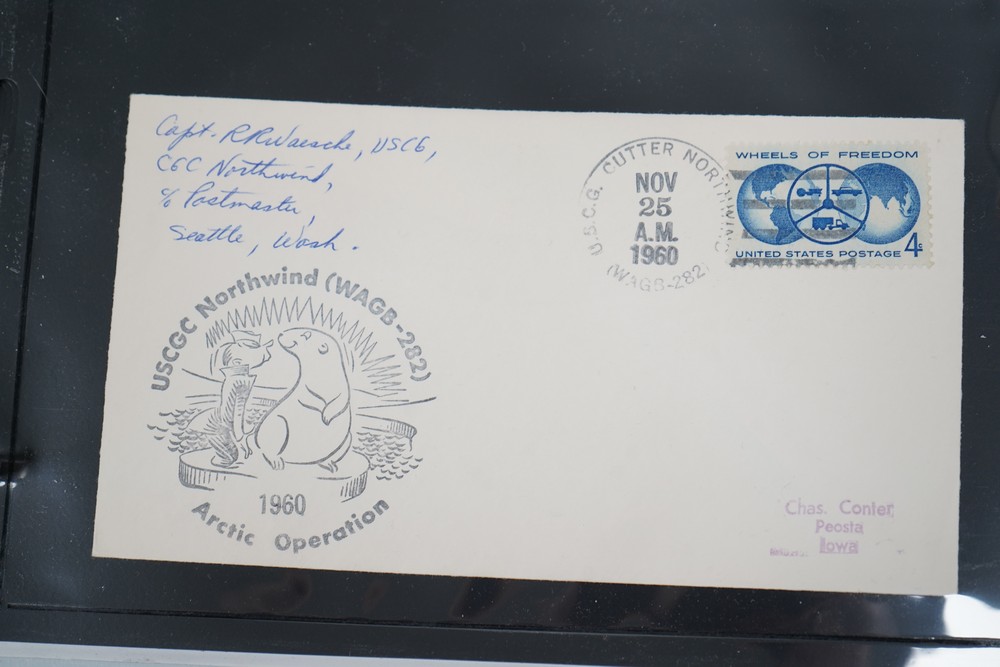 Capt. RRWaesche, USCG,
CGC Northwind,
c/o Postmaster,
Seattle, Wash.
USCGC Northwind (WAGB-282)
1960
Arctic Operation
U.S.C.G. CUTTER NORTHWIND
NOV
25
A.M.
1960
(WAGB-282)
WHEELS OF FREEDOM
UNITED STATES POSTAGE 4c
Chas. Conter
Peosta
Iowa